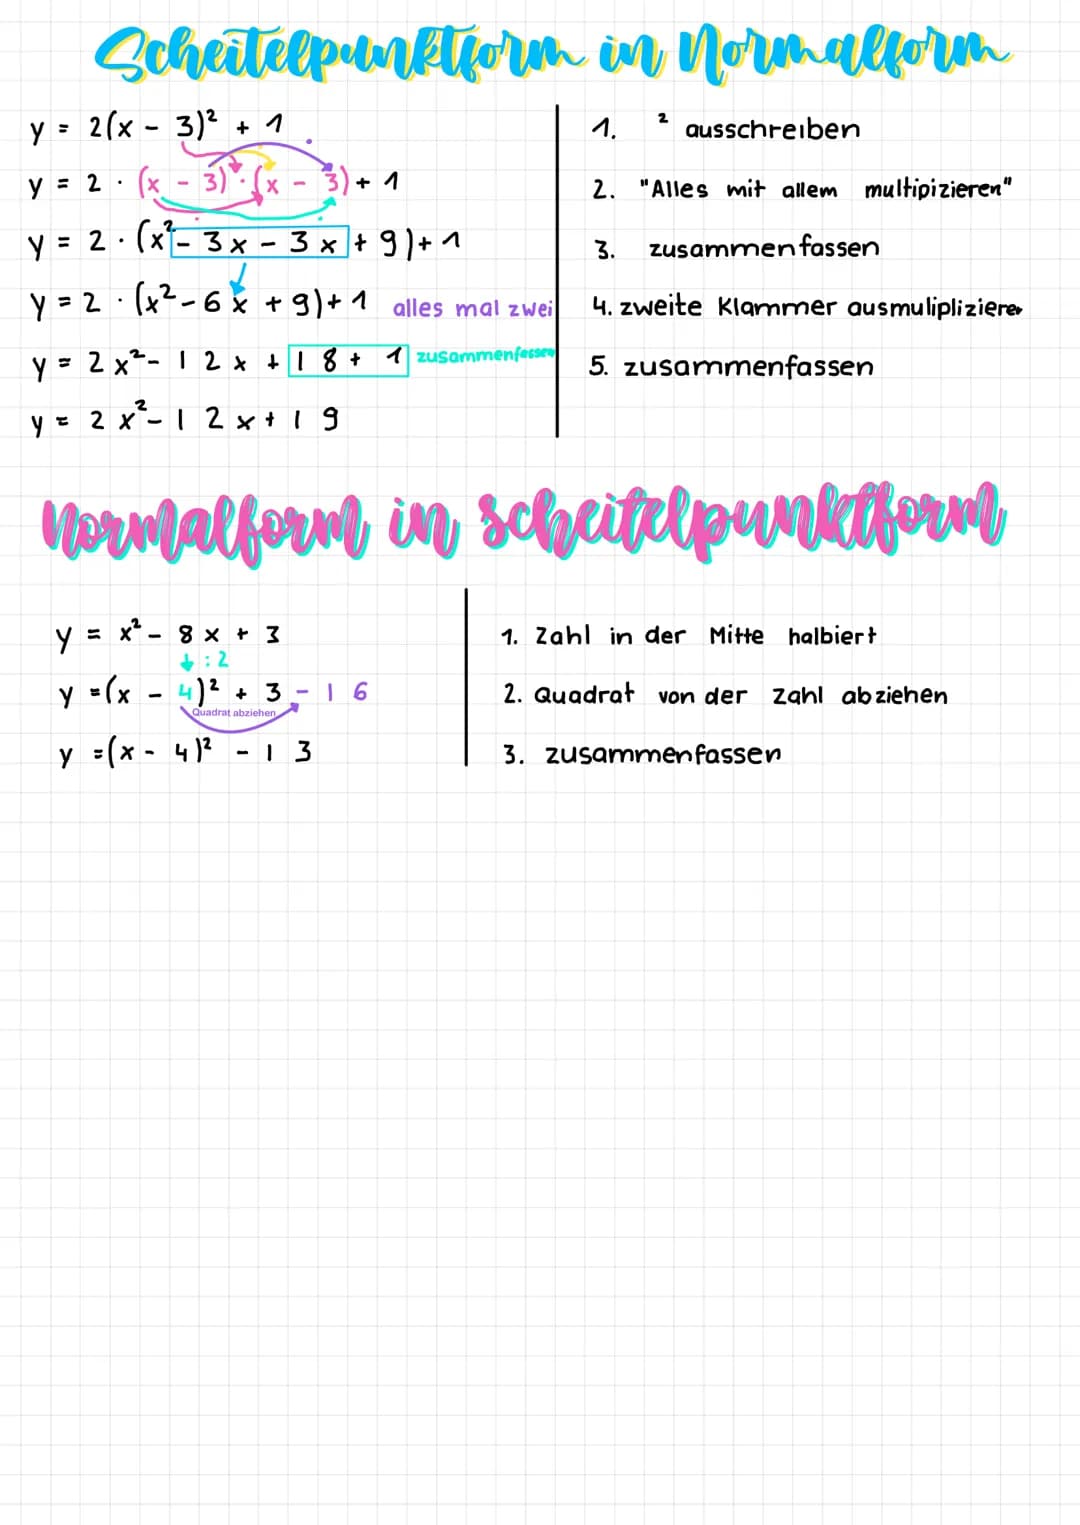 Scheitelpunktform in Normalform
y = 2(x - 3)² + 1
1. ² ausschreiben
y = 2 · (x - 3) · (x - 3) + 1
2. "Alles mit allem multipizieren"
y = 2 · (x² - 3x - 3x + 9) + 1
3. zusammenfassen
y = 2 · (x² - 6x + 9) + 1 alles mal zwei
4. zweite Klammer ausmulipliziere
y = 2x² - 12x + 18 + 1 zusammenfassen
5. zusammenfassen
y = 2x² - 12x + 19
Normalform in scheitelpunktform
y = x² - 8x + 3
1. Zahl in der Mitte halbiert
↓ : 2
y = (x - 4)² + 3 - 16
2. Quadrat von der Zahl abziehen
Quadrat abziehen
y = (x - 4)² - 13
3. zusammenfassen